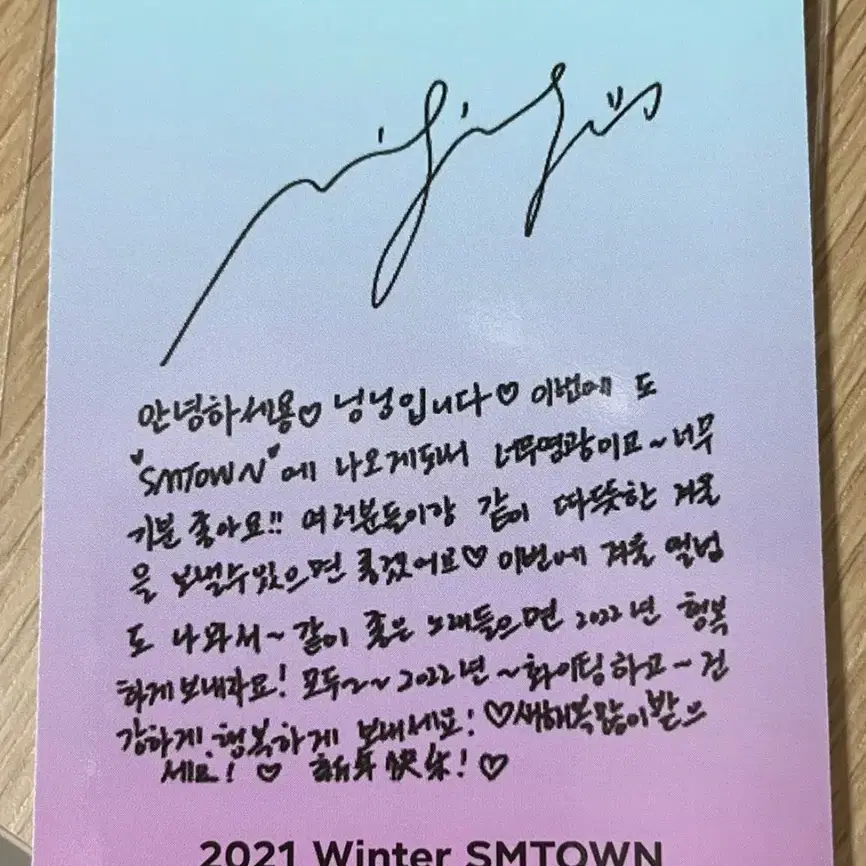 안녕하세용♡ 닝닝입니다♡ 이번에 도
"SMTOWN"에 나오게되서 너무영광이고~너무
기분 좋아요!! 여러분들이랑 같이 따뜻한 겨울
을 보낼수있으면 좋겠어요♡ 이번에 겨울 앨범
도 나와서~ 같이 좋은 노래들으면 2022년 행복
하게보내자요! 모두~~ 2022년~화이팅하고~건
강하게.행복하게 보내세요! ♡새해복많이받으
세요! ♡ 新年快乐! ♡
2021 Winter SMTOWN